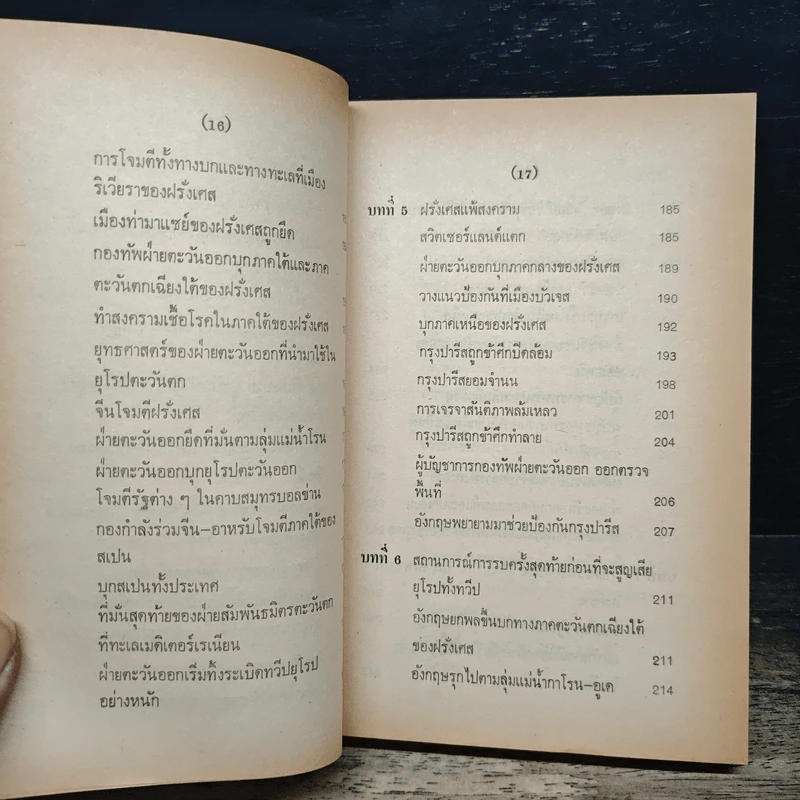 (16)
การโจมตีทั้งทางบกและทางทะเลที่เมือง
ริเวียราของฝรั่งเศส
เมืองท่ามาแซย์ของฝรั่งเศสถูกยึด
กองทัพฝ่ายตะวันออกบุกภาคใต้และภาค
ตะวันตกเฉียงใต้ของฝรั่งเศส
ทำสงครามเชื้อโรคในภาคใต้ของฝรั่งเศส
ยุทธศาสตร์ของฝ่ายตะวันออกที่นำมาใช้ใน
ยุโรปตะวันตก
จีนโจมตีฝรั่งเศส
ฝ่ายตะวันออกยึดที่มั่นตามลุ่มแม่น้ำโรน
ฝ่ายตะวันออกบุกยุโรปตะวันออก
โจมตีรัฐต่าง ๆ ในคาบสมุทรบอลข่าน
กองกำลังร่วมจีน–อาหรับโจมตีภาคใต้ของ
สเปน
บุกสเปนทั้งประเทศ
ที่มั่นสุดท้ายของฝ่ายสัมพันธมิตรตะวันตก
ที่ทะเลเมดิเตอร์เรเนียน
ฝ่ายตะวันออกเริ่มทิ้งระเบิดทวีปยุโรป
อย่างหนัก
(17)
บทที่ 5 ฝรั่งเศสแพ้สงคราม 185
สวิตเซอร์แลนด์แตก 185
ฝ่ายตะวันออกบุกภาคกลางของฝรั่งเศส 189
วางแนวป้องกันที่เมืองบัวเจส 190
บุกภาคเหนือของฝรั่งเศส 192
กรุงปารีสถูกข้าศึกปิดล้อม 193
กรุงปารีสยอมจำนน 198
การเจรจาสันติภาพล้มเหลว 201
กรุงปารีสถูกข้าศึกทำลาย 204
ผู้บัญชาการกองทัพฝ่ายตะวันออก ออกตรวจ
พื้นที่ 206
อังกฤษพยายามมาช่วยป้องกันกรุงปารีส 207
บทที่ 6 สถานการณ์การรบครั้งสุดท้ายก่อนที่จะสูญเสีย
ยุโรปทั้งทวีป 211
อังกฤษยกพลขึ้นบกทางภาคตะวันตกเฉียงใต้
ของฝรั่งเศส 211
อังกฤษรุกไปตามลุ่มแม่น้ำกาโรน–อูเด 214